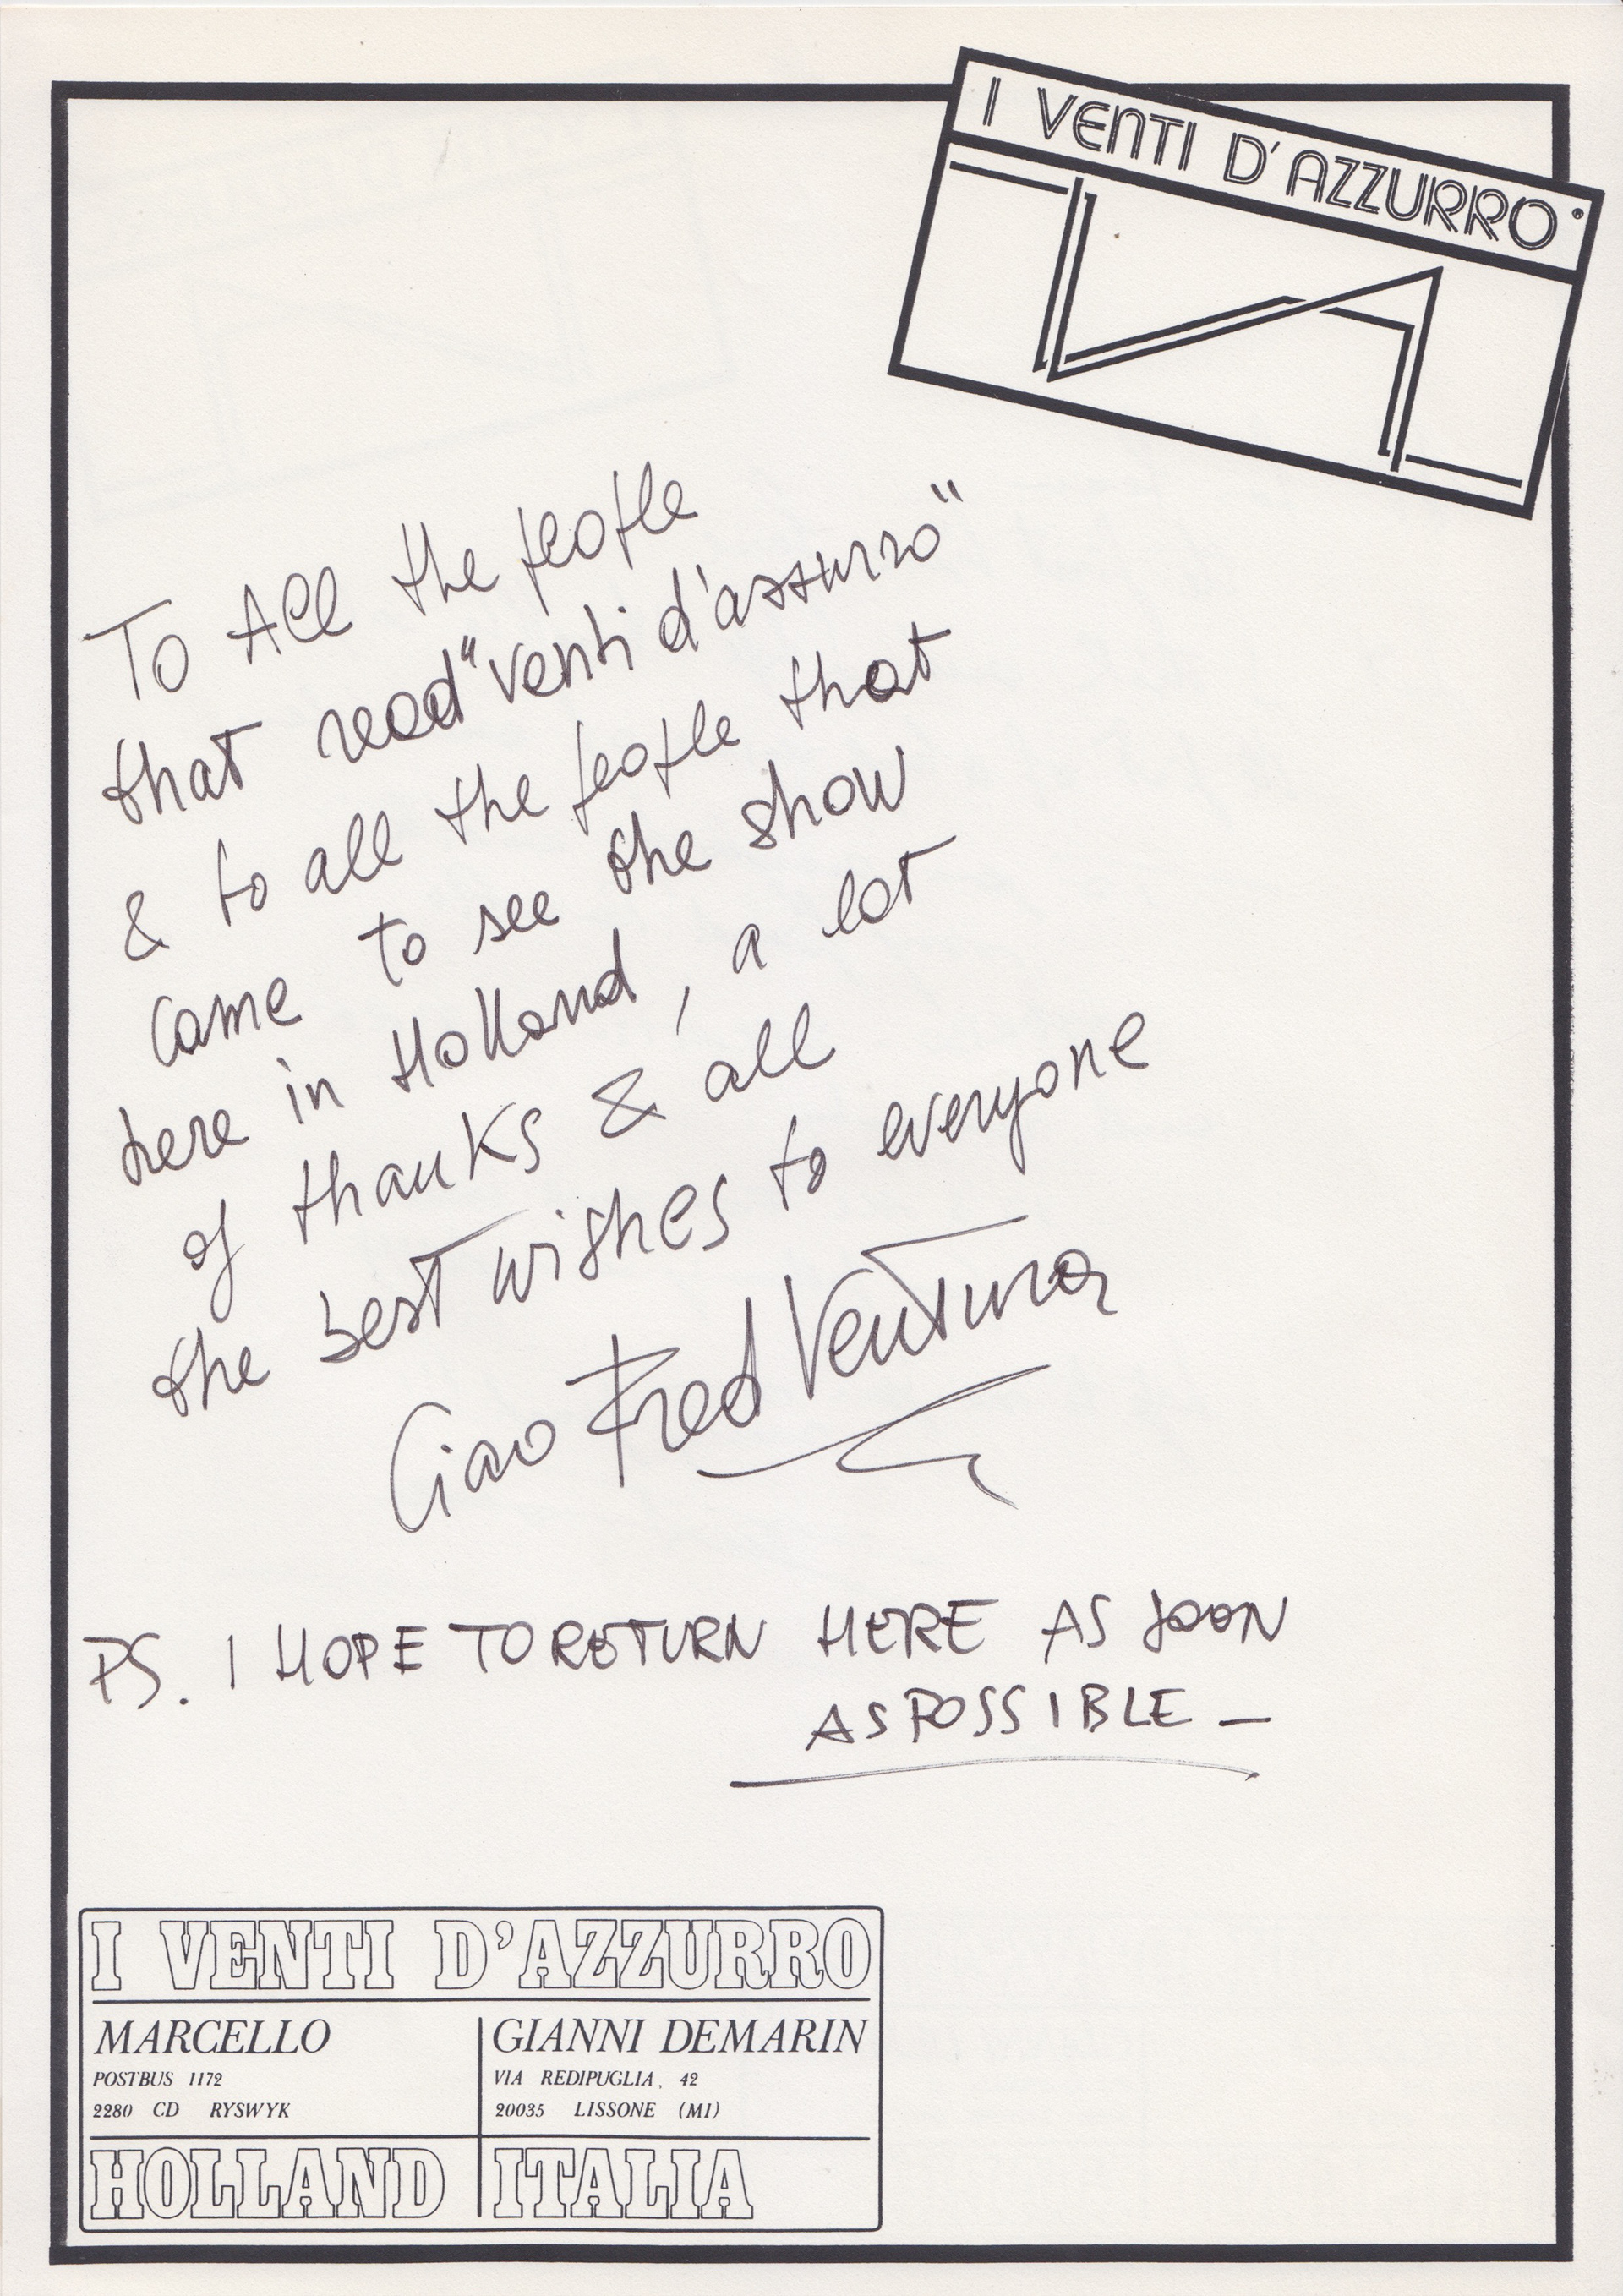 I VENTI D'AZZURRO
To All the people
that read "venti d'azzurro"
& to all the people that
came to see the show
here in Holland, a lot
of thanks & all
the best wishes to everyone
Ciao Fred Ventura
PS. I HOPE TO RETURN HERE AS SOON
AS POSSIBLE _
I VENTI D'AZZURRO
MARCELLO
POSTBUS 1172
2280 CD RYSWYK
HOLLAND
GIANNI DEMARIN
VIA REDIPUGLIA, 42
20035 LISSONE (MI)
ITALIA